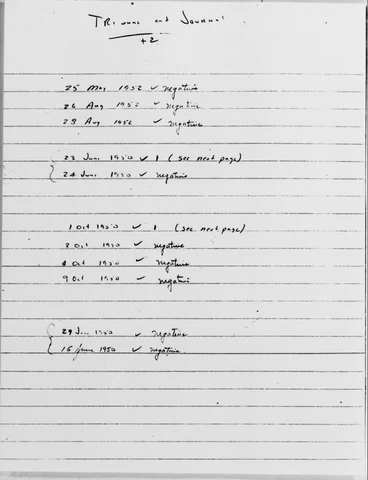 Tribune and Journal
+2
25 May 1952 ✓ negative
26 Aug 1952 ✓ negative
28 Aug 1952 ✓ negative
23 June 1950 ✓ 1 (see next page)
24 June 1950 ✓ negative
1 Oct 1950 ✓ 1 (see next page)
2 Oct 1950 ✓ negative
4 Oct 1950 ✓ negative
9 Oct 1950 ✓ negative
29 1950 ✓ negative
15 June 1950 ✓ negative